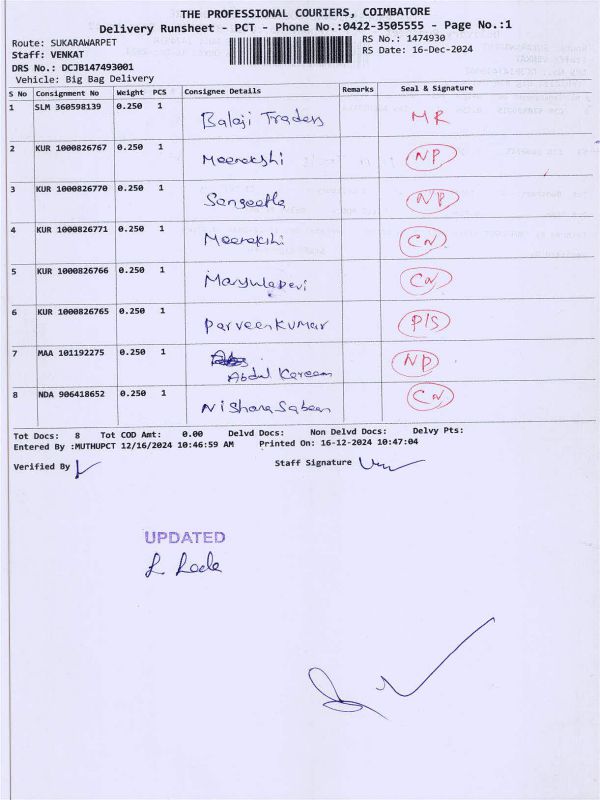 THE PROFESSIONAL COURIERS, COIMBATORE
Delivery Runsheet - PCT - Phone No.:0422-3505555 - Page No.:1
Route: SUKARAWARPET RS No.: 1474930
Staff: VENKAT RS Date: 16-Dec-2024
DRS No.: DCJB147493001
Vehicle: Big Bag Delivery
S No Consignment No Weight PCS Consignee Details Remarks Seal & Signature
1 SLM 360598139 0.250 1 Balaji Traders MR
2 KUR 1000826767 0.250 1 Meenakshi NP
3 KUR 1000826770 0.250 1 Sangeetha NP
4 KUR 1000826771 0.250 1 Meenakshi CN
5 KUR 1000826766 0.250 1 Manjula Devi CN
6 KUR 1000826765 0.250 1 Parveen Kumar P/S
7 MAA 101192275 0.250 1 Abdul Kareem NP
8 NDA 906418652 0.250 1 CN
Tot Docs: 8 Tot COD Amt: 0.00 Delvd Docs: Non Delvd Docs: Delvy Pts:
Entered By :MUTHUPCT 12/16/2024 10:46:59 AM Printed On: 16-12-2024 10:47:04
Verified By Staff Signature
UPDATED